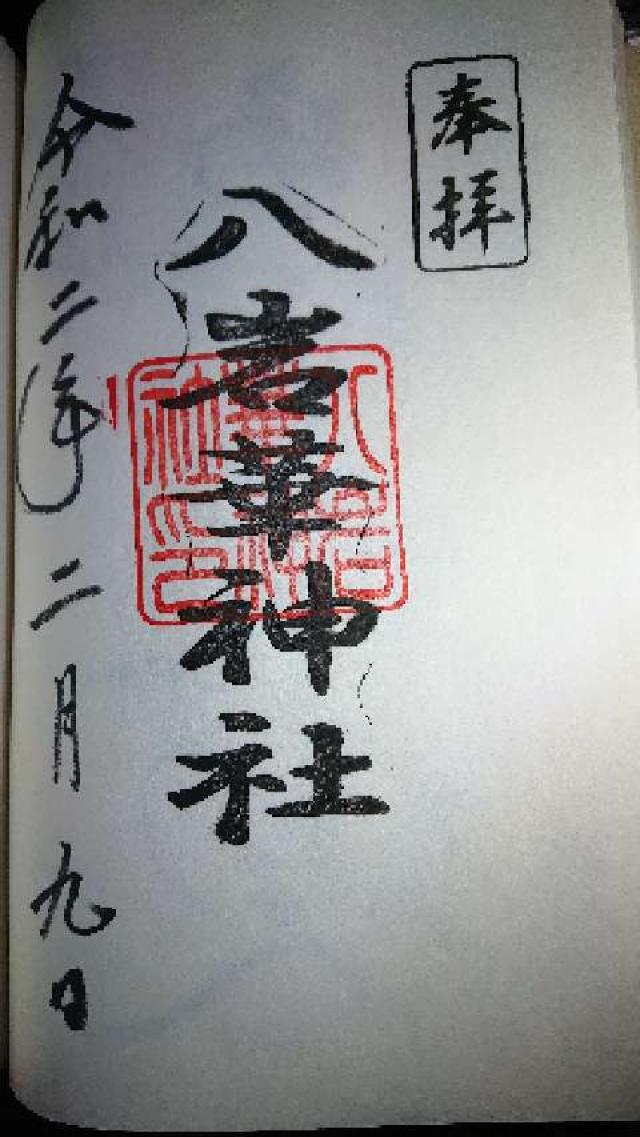 奉拝
八岩華神社
令和二年
二月九日